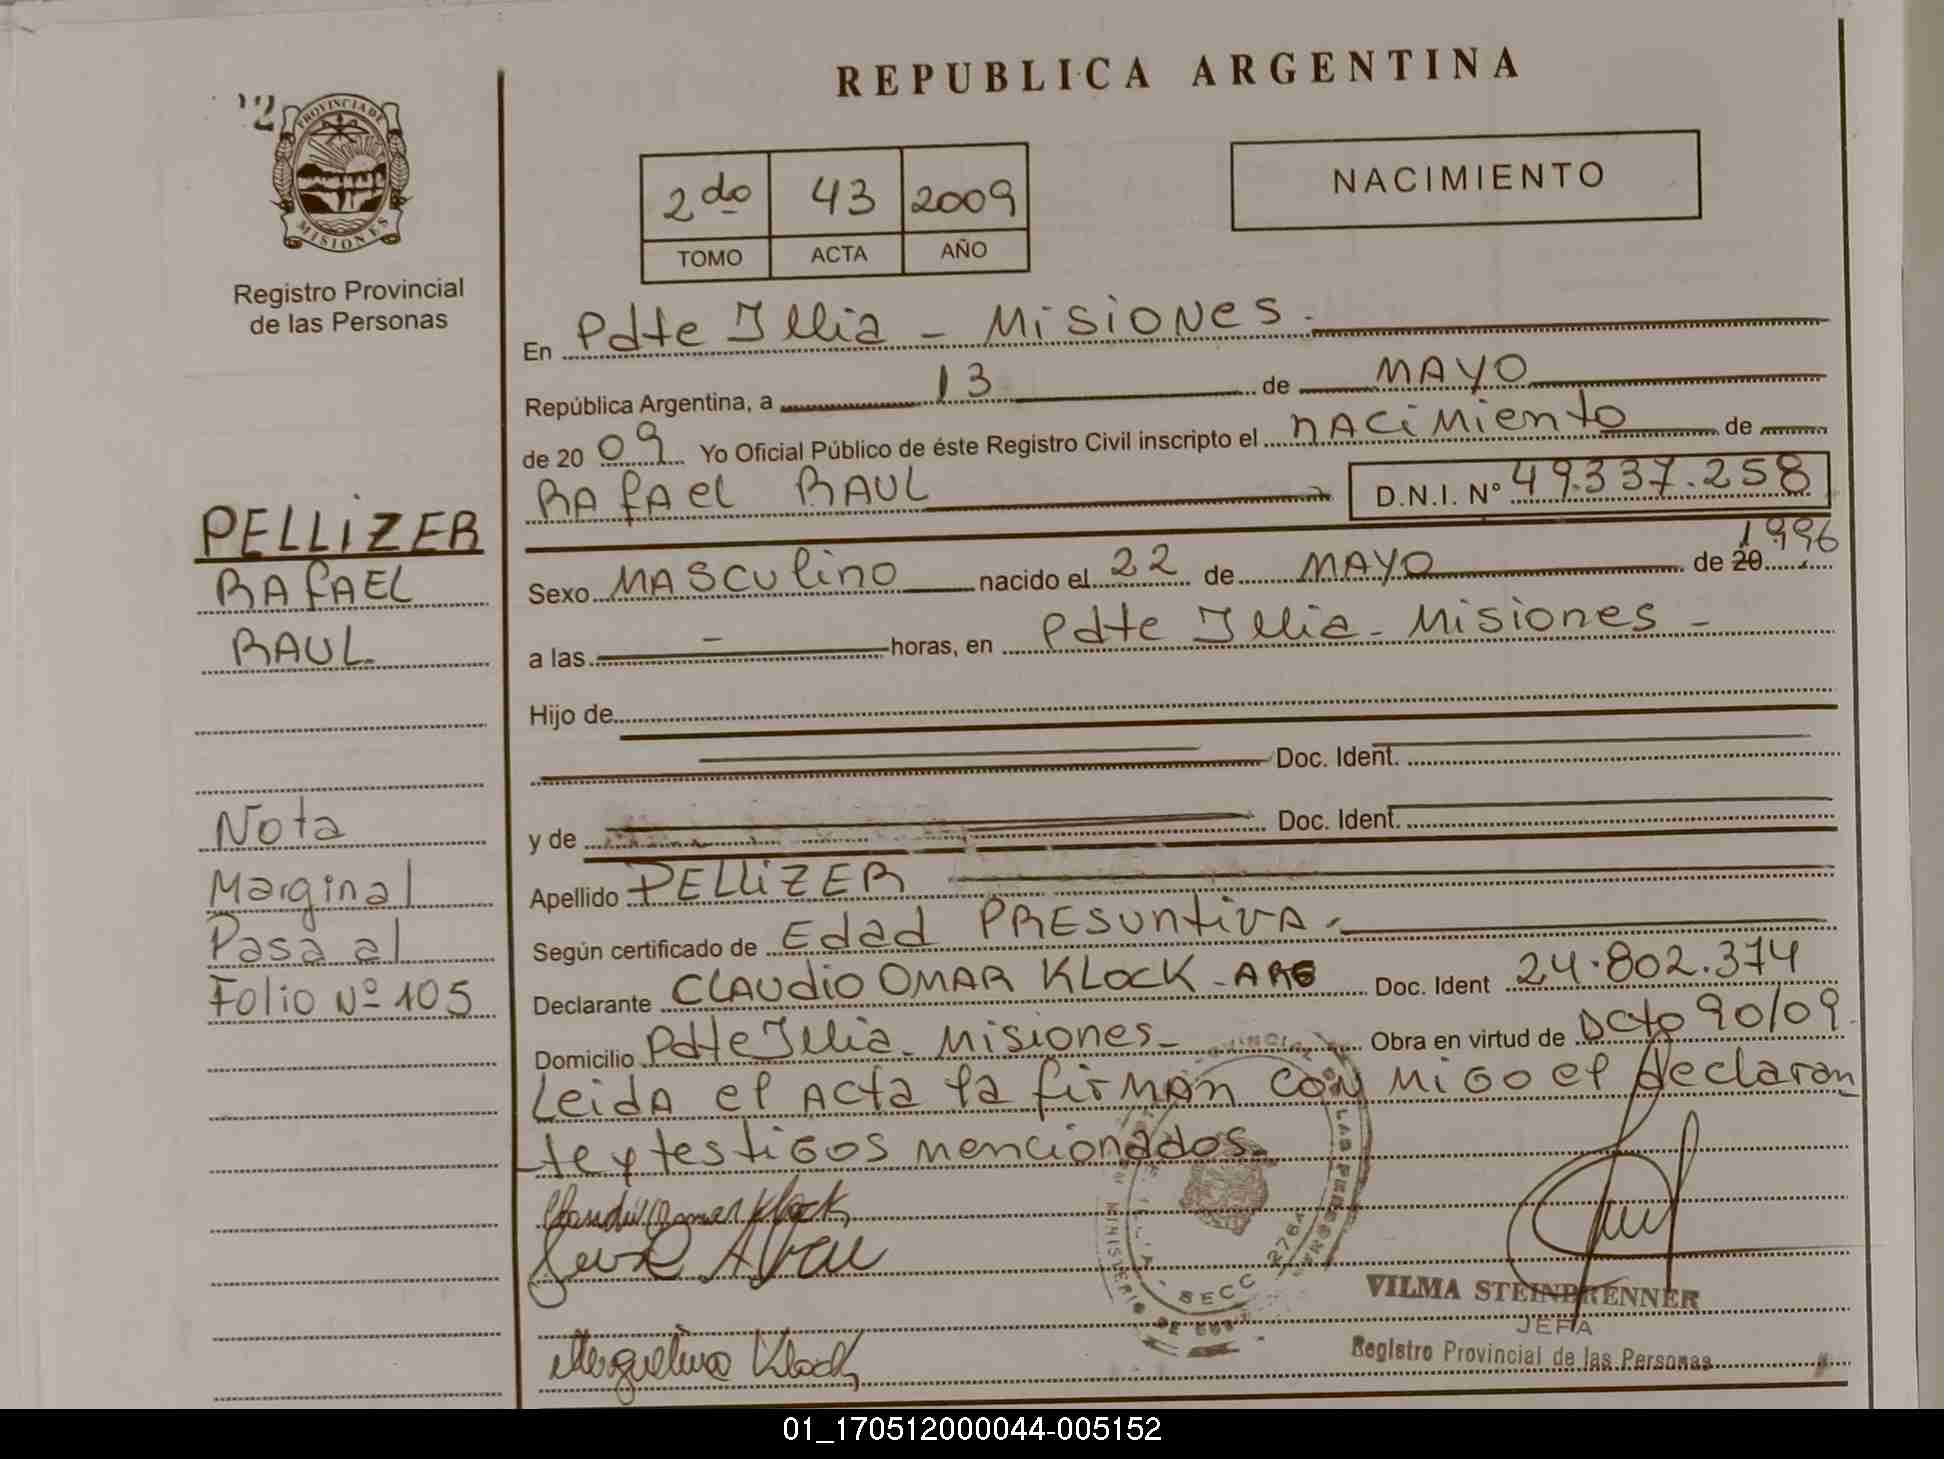 REPUBLICA ARGENTINA
PROVINCIA DE
MISIONES
Registro Provincial
de las Personas
2do 43 2009
TOMO ACTA AÑO
NACIMIENTO
En Pdte Illia - Misiones.
República Argentina, a 13 de MAYO
de 2009 Yo Oficial Público de éste Registro Civil inscripto el nacimiento de
RAfael RAUL D.N.I. Nº 49.337.258
Sexo MASculino nacido el 22 de MAYO de 20 1996
a las - horas, en Pdte Illia - Misiones -
Hijo de
Doc. Ident.
y de Doc. Ident.
Apellido PELLiZER
Según certificado de Edad PRESuntiva.
Declarante CLAUdio OMAR KLocK - ARG Doc. Ident 24.802.374
Domicilio Pdte Illia - Misiones - Obra en virtud de Dcto 90/09.
Leida el Acta la firman con migo el declaran
te y testigos mencionados.
PELLiZER
RAfAEL
RAUL
Nota
Marginal
Pasa al
Folio Nº 105
Claudio Omar Klock
Klock
SECC 2764
MINISTERIO DE
VILMA STEINBRENNER
JEFA
Registro Provincial de las Personas
01_170512000044-005152